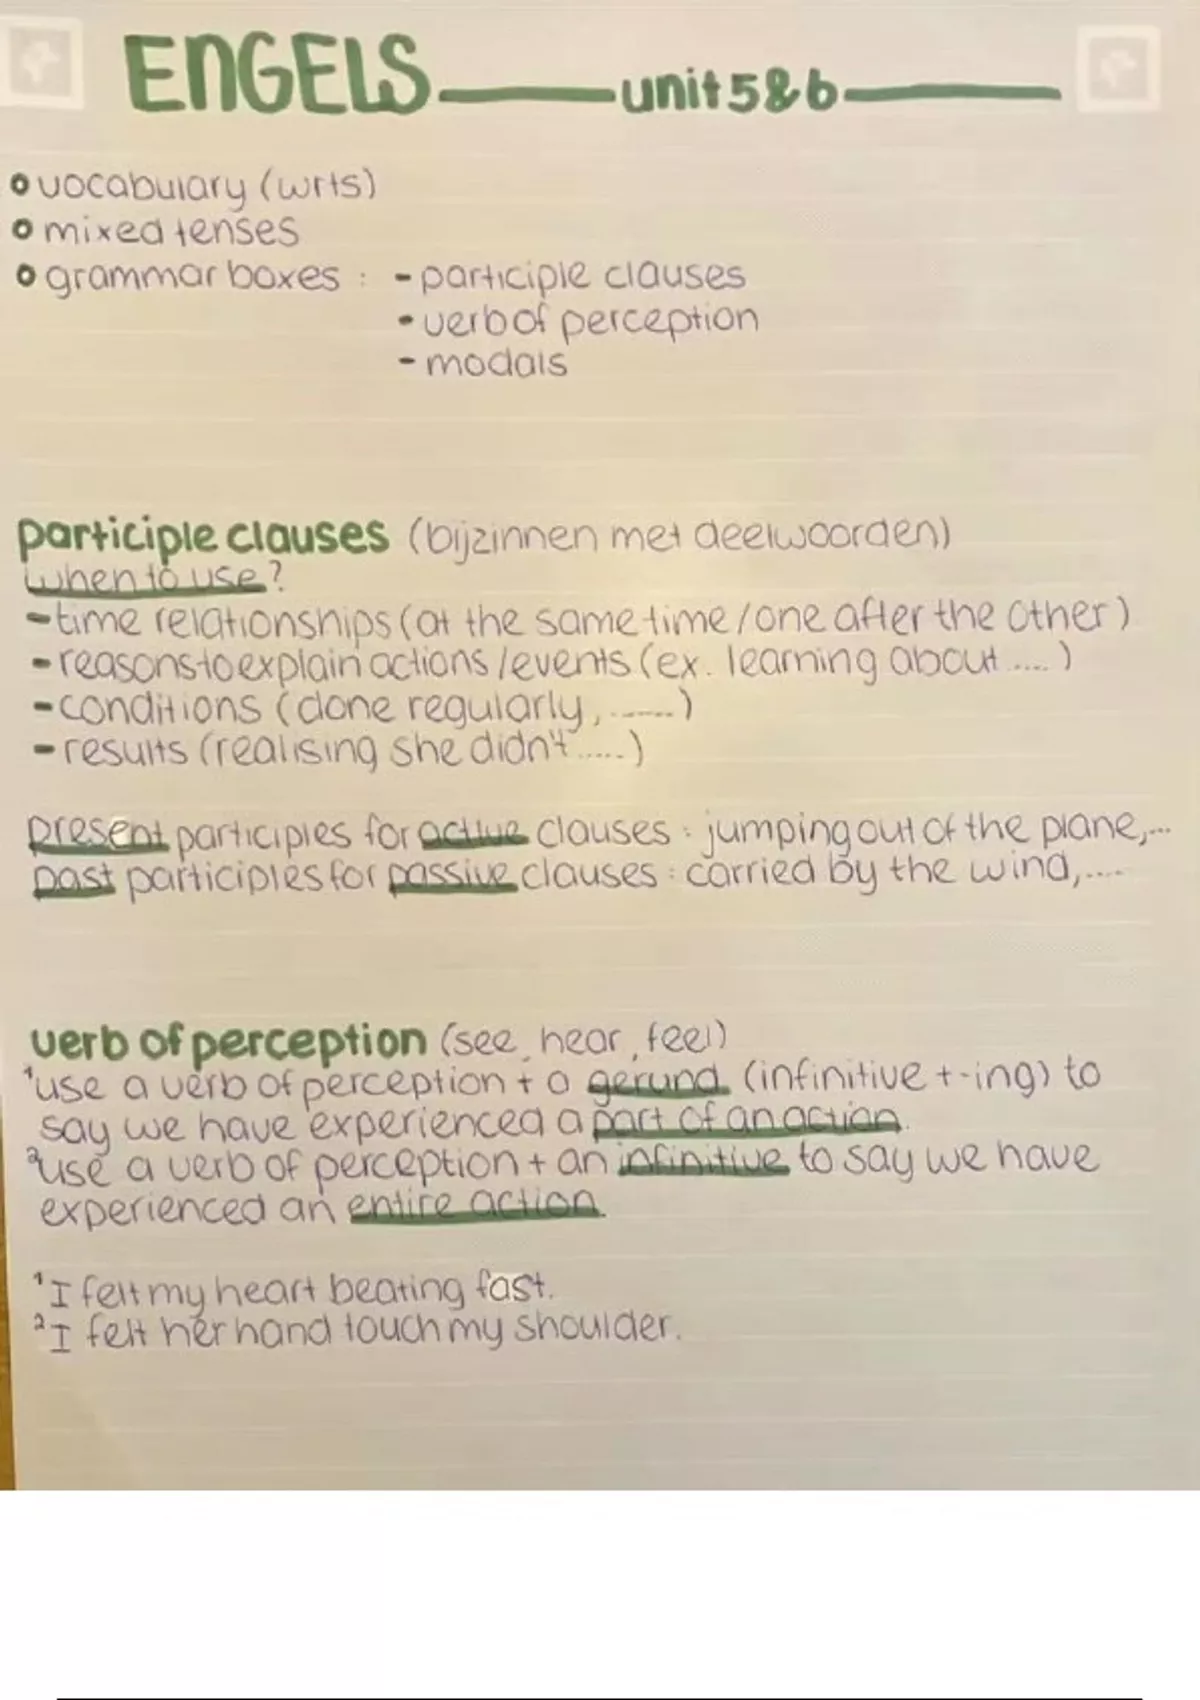 ENGELS unit 5 & 6
vocabulary (wrts)
mixed tenses
grammar boxes : - participle clauses
- verb of perception
- modals
participle clauses (bijzinnen met deelwoorden)
when to use?
- time relationships (at the same time / one after the other)
- reasons to explain actions / events (ex. learning about ..... )
- conditions (done regularly, ........)
- results (realising she didn't ......)
present participles for active clauses : jumping out of the plane,...
past participles for passive clauses : carried by the wind,....
verb of perception (see, hear, feel)
¹use a verb of perception + a gerund (infinitive + -ing) to
say we have experienced a part of an action.
²use a verb of perception + an infinitive to say we have
experienced an entire action.
¹I felt my heart beating fast.
²I felt her hand touch my shoulder.